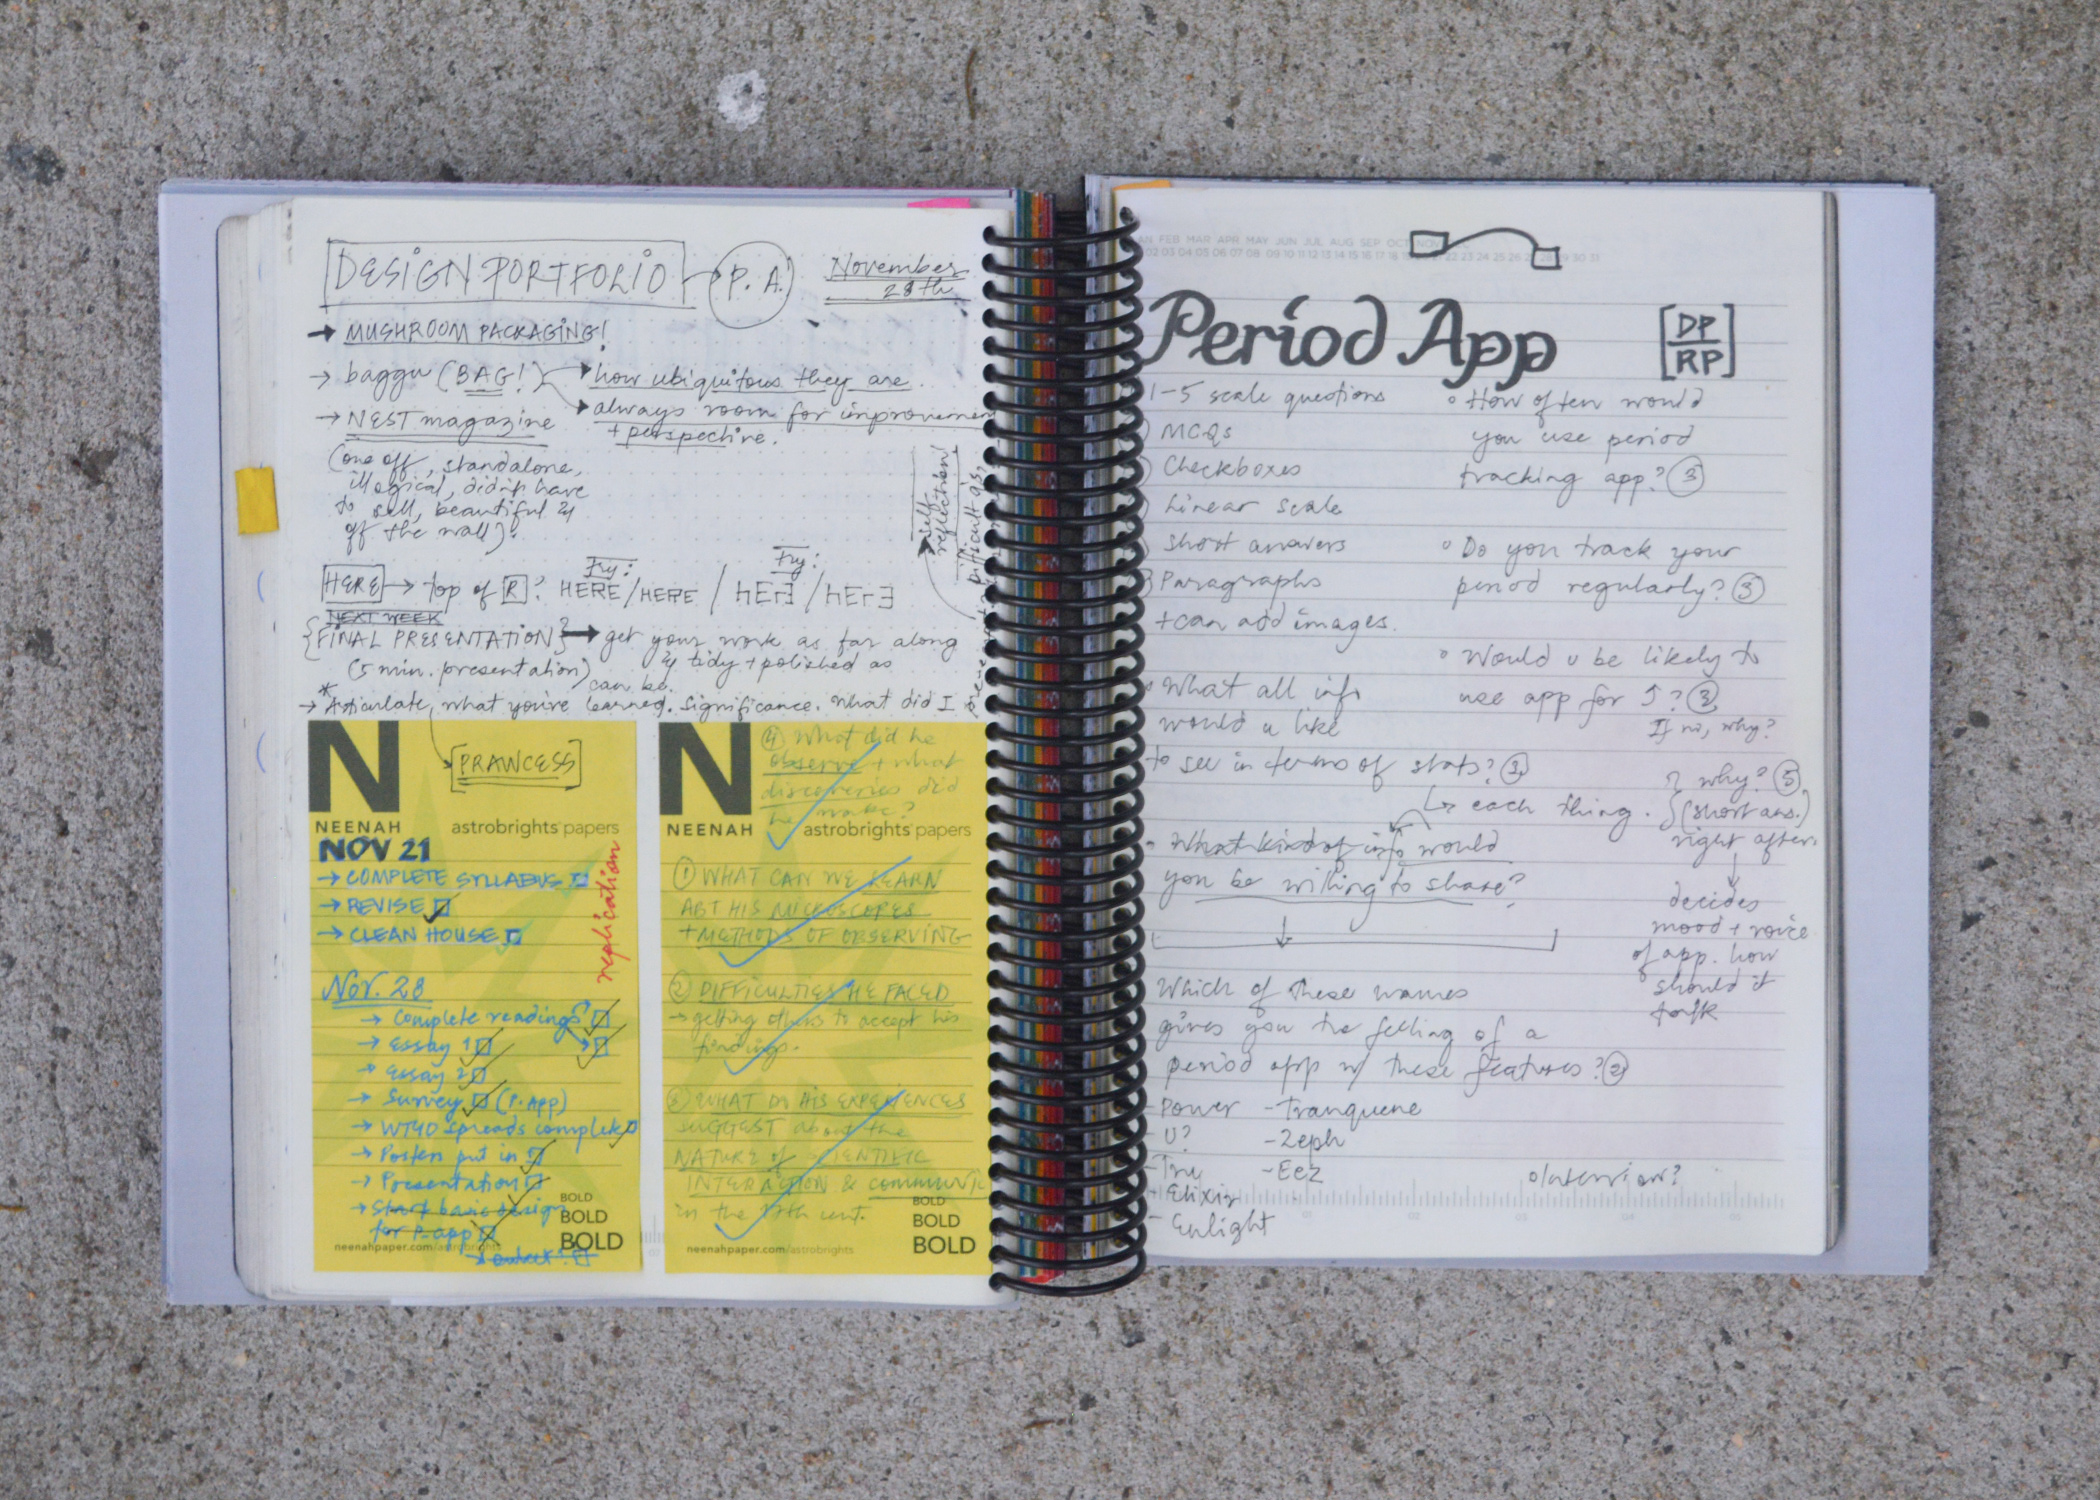 DESIGN PORTFOLIO
P. A.
November
28th
MUSHROOM PACKAGING!
→ baggu (BAG!)
how ubiquitous they are.
always room for improvemen
+ perspective.
→ NEST magazine
(one off, standalone,
illogical, didn't have
to sell, beautiful &
off the wall).
self
reflection
difficult qs,
HERE → top of R? Try: HERE / HERE / Try: hEr∃ / hEr∃
NEXT WEEK
{FINAL PRESENTATION} → get your work as far along
(5 min. presentation) & tidy + polished as
can be.
→ * Articulate what you've learned. significance. What did I
[PRAWCESS]
N
NEENAH
astrobrights papers
NOV 21
→ COMPLETE SYLLABUS
→ REVISE
→ CLEAN HOUSE
replication
Nov. 28
→ Complete readings
→ Essay 1
→ Essay 2
→ Survey (P. App)
→ WTYO spreads complete
→ Posters put in
→ Presentation
→ Start basic design
for P-app
BOLD
BOLD
BOLD
neenahpaper.com/astrobrights
N
NEENAH
astrobrights papers
④ What did he
observe + what
discoveries did
he make?
① WHAT CAN WE LEARN
ABT HIS MICROSCOPES
+ METHODS OF OBSERVING
② DIFFICULTIES HE FACED
→ getting others to accept his
findings.
③ WHAT DO HIS EXPERIENCES
SUGGEST about the
NATURE of SCIENTIFIC
INTERACTION & COMMUNIC
in the 17th cent.
BOLD
BOLD
BOLD
neenahpaper.com/astrobrights
AN FEB MAR APR MAY JUN JUL AUG SEP OCT NOV
02 03 04 05 06 07 08 09 10 11 12 13 14 15 16 17 18 22 23 24 25 26 28 29 30 31
Period App
[DP
RP]
1-5 scale questions
MCQs
Checkboxes
Linear scale
Short answers
Paragraphs
+ can add images.
◦ How often would
you use period
tracking app? ③
◦ Do you track your
period regularly? ③
◦ Would u be likely to
use app for ↑? ②
If no, why?
What all info
would u like
to see in terms of stats? ③
↳ each thing.
why? ⑤
(short ans.)
right after.
↓
decides
mood + voice
of app. how
should it
talk
- What kind of info would
you be willing to share?
↓
Which of these names
gives you the feeling of a
period app w/ these features? ②
- Power
- U?
- Elixir
- Enlight
- Zeph
- Eez